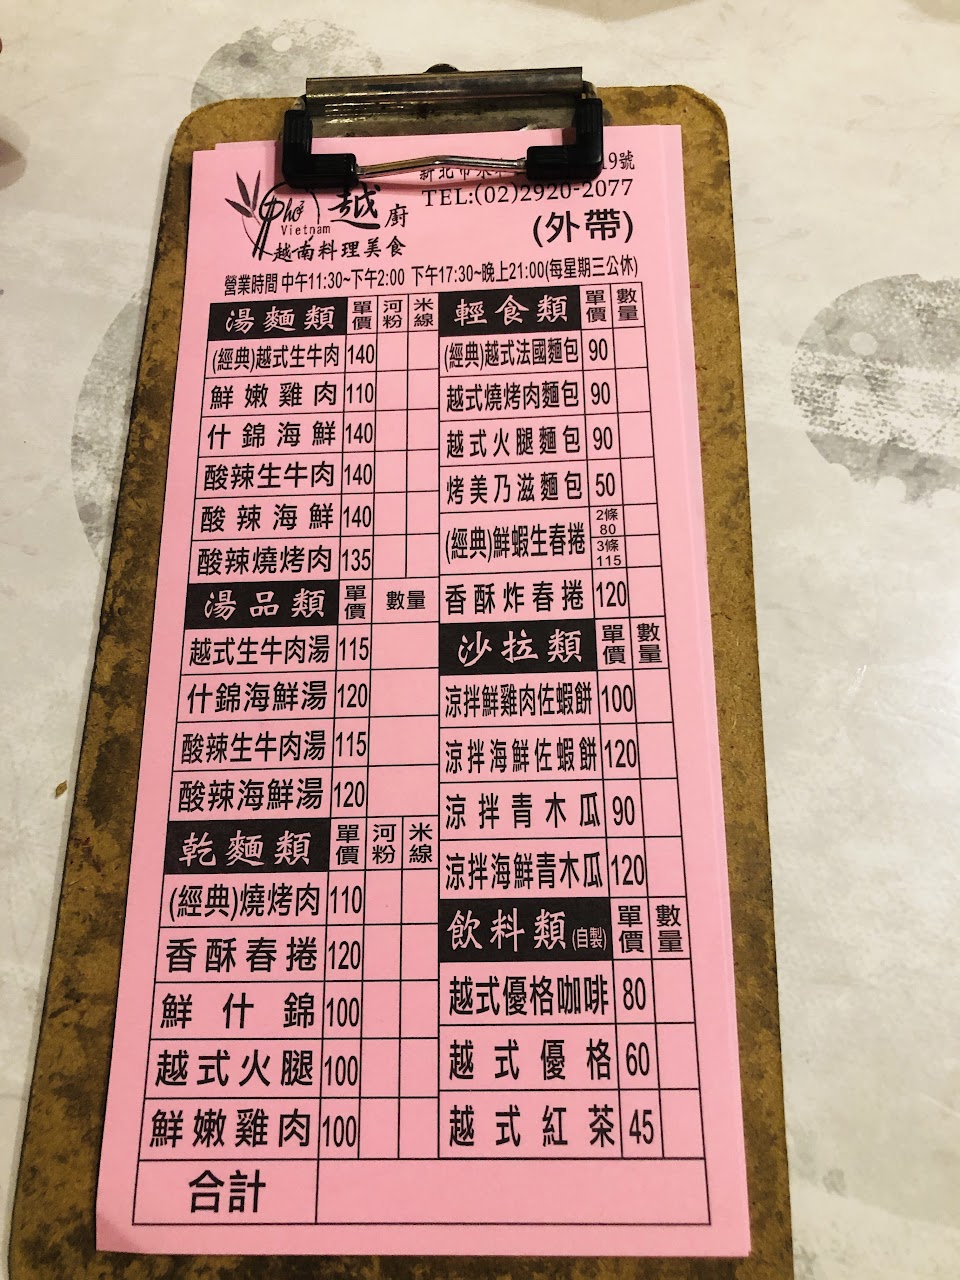 新北市永
19號
TEL:(02)2920-2077
Phở 越廚
Vietnam
(外帶)
越南料理美食
營業時間 中午11:30~下午2:00 下午17:30~晚上21:00(每星期三公休)
湯麵類 單價 河粉 米線
(經典)越式生牛肉 140
鮮嫩雞肉 110
什錦海鮮 140
酸辣生牛肉 140
酸辣海鮮 140
酸辣燒烤肉 135
湯品類 單價 數量
越式生牛肉湯 115
什錦海鮮湯 120
酸辣生牛肉湯 115
酸辣海鮮湯 120
乾麵類 單價 河粉 米線
(經典)燒烤肉 110
香酥春捲 120
鮮什錦 100
越式火腿 100
鮮嫩雞肉 100
輕食類 單價 數量
(經典)越式法國麵包 90
越式燒烤肉麵包 90
越式火腿麵包 90
烤美乃滋麵包 50
(經典)鮮蝦生春捲 2條 80 3條 115
香酥炸春捲 120
沙拉類 單價 數量
涼拌鮮雞肉佐蝦餅 100
涼拌海鮮佐蝦餅 120
涼拌青木瓜 90
涼拌海鮮青木瓜 120
飲料類(自製) 單價 數量
越式優格咖啡 80
越式優格 60
越式紅茶 45
合計